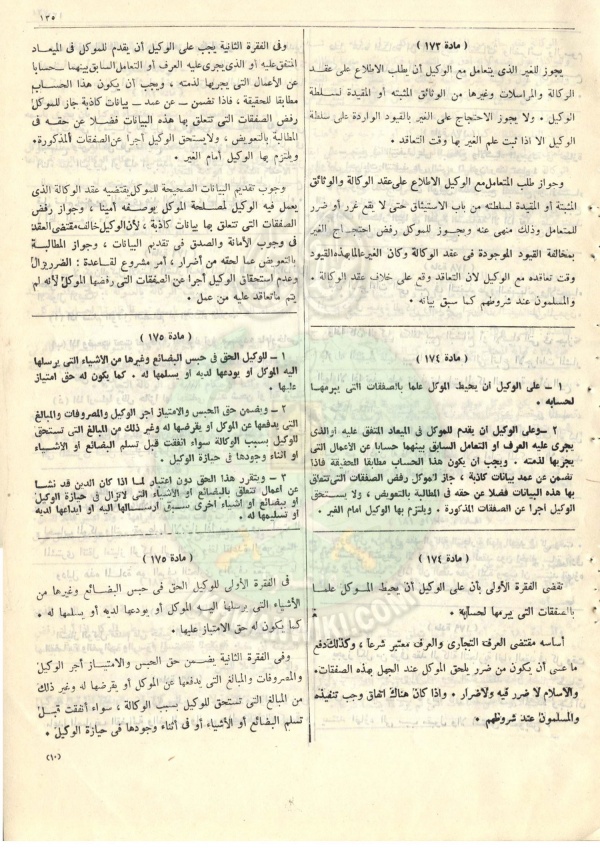 ١٣٥
( مادة ١٧٣ )
يجوز للغير الذى يتعامل مع الوكيل أن يطلب الاطلاع على عقد
الوكالة والمراسلات وغيرها من الوثائق المثبتة أو المقيدة لسلطة
الوكيل ٠ ولا يجوز الاحتجاج على الغير بالقيود الواردة على سلطة
الوكيل الا اذا ثبت علم الغير بها وقت التعاقد ٠
وجواز طلب المتعامل مع الوكيل الاطلاع على عقد الوكالة والوثائق
المثبتة أو المقيدة لسلطته من باب الاستيثاق حتى لا يقع غرر أو ضرر
للمتعامل وذلك منهى عنه ويجوز للموكل رفض احتجاج الغير
بمخالفة القيود الموجودة فى عقد الوكالة وكان الغير عالما بهذه القيود
وقت تعاقده مع الوكيل لان التعاقد وقع على خلاف عقد الوكالة ٠
والمسلمون عند شروطهم كما سبق بيانه ٠
( مادة ١٧٤ )
١ – على الوكيل أن يحيط الموكل علما بالصفقات التى يبرمها
لحسابه ٠
٢ – وعلى الوكيل أن يقدم للموكل فى الميعاد المتفق عليه أو الذى
يجرى عليه العرف أو التعامل السابق بينهما حسابا عن الأعمال التى
يجربها لذمته ٠ ويجب أن يكون هذا الحساب مطابقا للحقيقة فاذا
تضمن عن عمد بيانات كاذبة ، جاز للموكل رفض الصفقات التى تتعلق
بها هذه البيانات فضلا عن حقه فى المطالبة بالتعويض ، ولا يستحق
الوكيل أجرا عن الصفقات المذكورة ٠ ويلتزم بها الوكيل أمام الغير ٠
( مادة ١٧٤ )
تقضى الفقرة الأولى بأن على الوكيل أن يحيط الموكل علما
بالصفقات التى يبرمها لحسابه ٠
أساسه مقتضى العرف التجارى والعرف معتبر شرعا ، وكذلك دفع
ما عسى أن يكون من ضرر يلحق الموكل عند الجهل بهذه الصفقات ٠
والاسلام لا ضرر فيه ولا ضرار ٠ واذا كان هناك اتفاق وجب تنفيذه
والمسلمون عند شروطهم ٠
وفى الفقرة الثانية يجب على الوكيل أن يقدم للموكل فى الميعاد
المتفق عليه أو الذى يجرى عليه العرف أو التعامل السابق بينهما – حسابا
عن الأعمال التى يجريها لذمته ، ويجب أن يكون هذا الحساب
مطابقا للحقيقة ، فاذا تضمن – عن عمد – بيانات كاذبة جاز للموكل
رفض الصفقات التى تتعلق بها هذه البيانات فضلا عن حقه فى
المطالبة بالتعويض ، ولا يستحق الوكيل أجرا عن الصفقات المذكورة ٠
ويلتزم بها الوكيل أمام الغير ٠
وجوب تقديم البيانات الصحيحة للموكل يقتضيه عقد الوكالة الذى
يعمل فيه الوكيل لمصلحة الموكل بوصفه أمينا ، وجواز رفض
الصفقات التى تتعلق بها بيانات كاذبة ، لأن الوكيل خالف مقتضى العقد
فى وجوب الأمانة والصدق فى تقديم البيانات ، وجواز المطالبة
بالتعويض عما لحقه من أضرار ، أمر مشروع لقاعدة : الضرر يزال
وعدم استحقاق الوكيل أجرا عن الصفقات التى رفضها الموكل لأنه لم
يتم ما تعاقد عليه من عمل ٠
( مادة ١٧٥ )
١ – للوكيل الحق فى حبس البضائع وغيرها من الأشياء التى يرسلها
اليه الموكل أو يودعها لديه أو يسلمها له ٠ كما يكون له حق امتياز
عليها ٠
٢ – ويضمن حق الحبس والامتياز أجر الوكيل والمصروفات والمبالغ
التى يدفعها عن الموكل أو يقرضها له وغير ذلك من المبالغ التى تستحق
للوكيل بسبب الوكالة سواء أنفقت قبل تسلم البضائع أو الأشياء
أو أثناء وجودها فى حيازة الوكيل ٠
٣ – ويتقرر هذا الحق دون اعتبار لما اذا كان الدين قد نشأ
عن أعمال تتعلق بالبضائع أو الأشياء التى لاتزال فى حيازة الوكيل
أو ببضائع أو أشياء أخرى سبق ارسالها اليه أو ايداعها لديه
أو تسليمها له ٠
( مادة ١٧٥ )
فى الفقرة الأولى للوكيل الحق فى حبس البضائع وغيرها من
الأشياء التى يرسلها اليه الموكل أو يودعها لديه أو يسلمها له ٠
كما يكون له حق الامتياز عليها ٠
وفى الفقرة الثانية يضمن حق الحبس والامتياز أجر الوكيل
والمصروفات والمبالغ التى يدفعها عن الموكل أو يقرضها له وغير ذلك
من المبالغ التى تستحق للوكيل بسبب الوكالة ، سواء أنفقت قبل
تسلم البضائع أو الأشياء أو فى أثناء وجودها فى حيازة الوكيل ٠
(١٠)